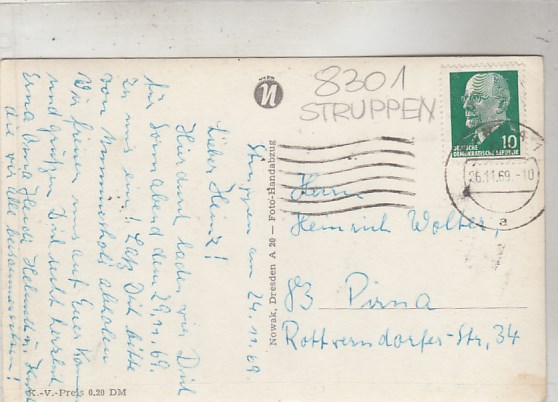 Struppen am 24.11.69
Lieber Heinz!
Hierdurch laden wir Dich
für Sonnabend den 29.11.69.
zu uns ein! Laß Dich bitte
von
abholen.
Wir freuen uns auf Euer Kommen
und grüßen Dich recht herzlich
Erna Oma Heidi Helmut u.
die wir alle beisammen
K.-V.-Preis 0.20 DM
Nowak, Dresden A 20 — Foto-Handabzug
8301
STRUPPEN
DEUTSCHE
DEMOKRATISCHE REPUBLIK
10
26.11.69.-10
a
Herrn
Heinrich Wolter,
83 Pirna
Rottwerndorfer-Str, 34